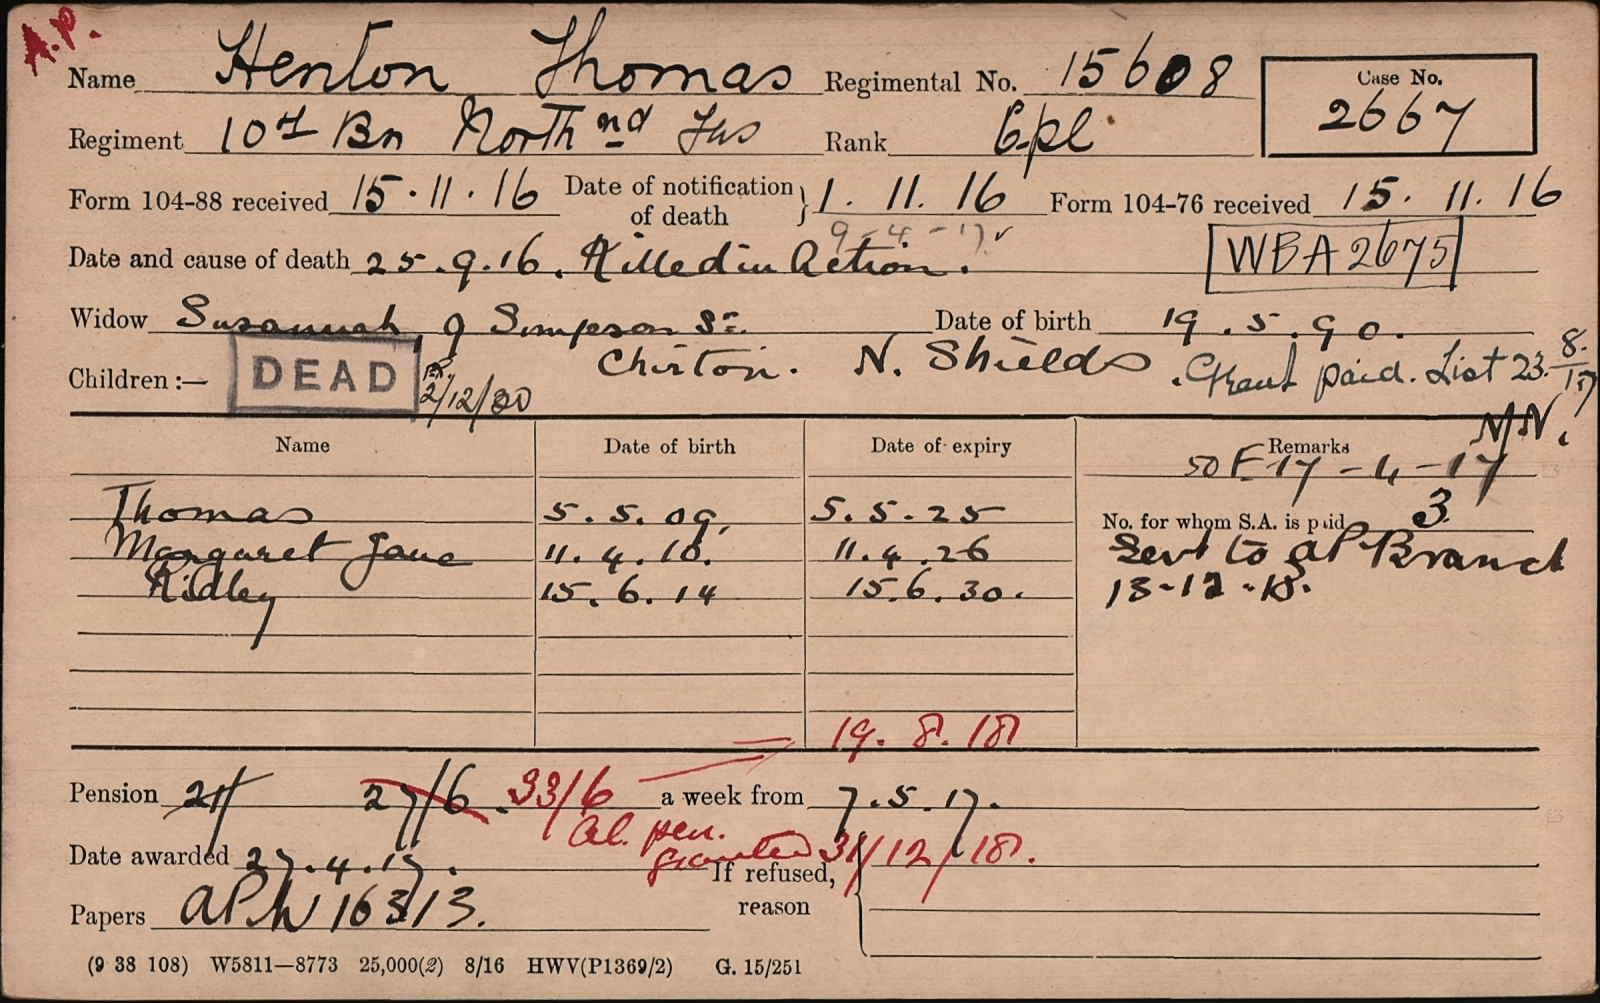 A.P.
Name Henton Thomas Regimental No. 15608
Case No.
2667
Regiment 10th Bn North nd Fus Rank Cpl.
Form 104-88 received 15.11.16 Date of notification of death } 1.11.16 Form 104-76 received 15.11.16
9-4-17
Date and cause of death 25.9.16. Killed in Action. WBA 2675
Widow Susannah, 9 Simpson St. Date of birth 19.5.90.
Children :— DEAD 2/12/20 Chirton. N. Shields. Grant paid. List 23. 8./17
N/N.
Name Date of birth Date of expiry Remarks
50 F. 17-4-17
Thomas 5.5.09. 5.5.25
No. for whom S.A. is paid 3
Margaret Jane 11.4.10. 11.4.26 Sent to AP Branch
Ridley 15.6.14 15.6.30. 13-12-18.
19.8.18
Pension 21/ 27/6. 33/6 a week from 7.5.17.
Al. pen.
granted 31/12/18.
Date awarded 27.4.17.
If refused, reason
Papers APW 16313.
(9 38 108) W5811—8773 25,000(2) 8/16 HWV(P1369/2) G. 15/251